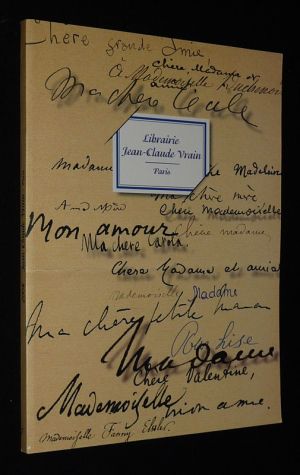 Chère grande Amie
Chère Madame et
amie
à Mademoiselle
Ma chère Cécile
Librairie
Jean-Claude Vrain
Paris
Madame
Madeleine
Ma chère
Chère Mademoiselle
Mon amour
Chère madame,
Ma chère Carola.
Chère Madame et amie
Mademoiselle
Madame
Ma chère petite maman
Pour Lise
Madame
Chère Valentine,
Mademoiselle
mon amie.
Mademoiselle Fanny Elssler.